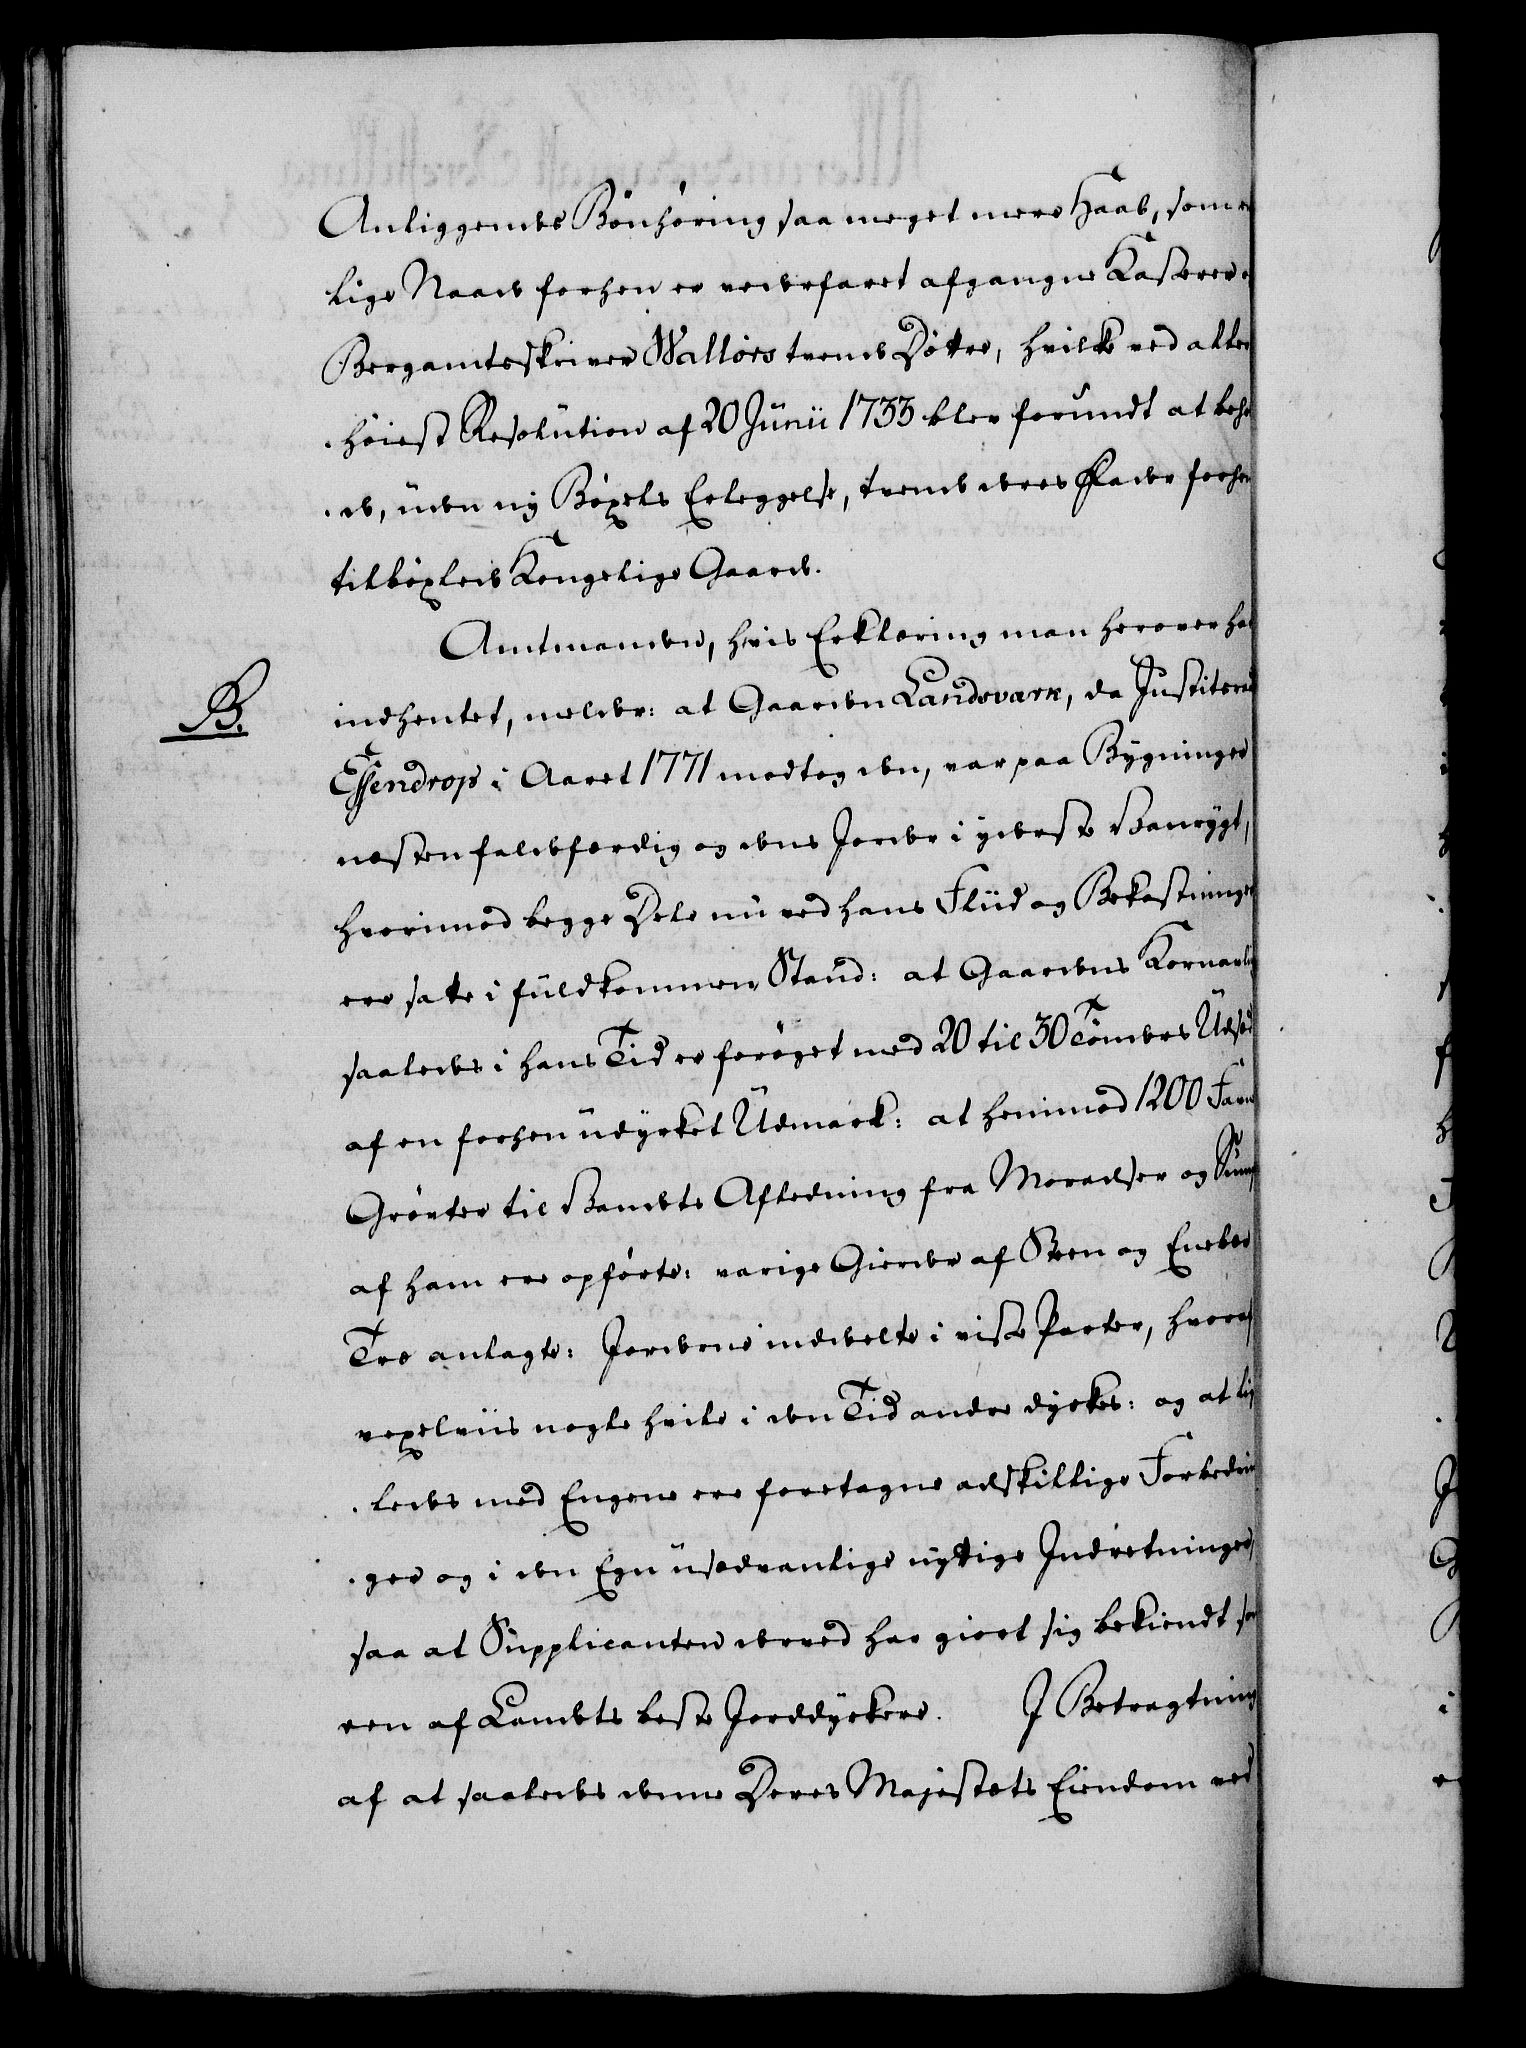 Anliggendes Bönhöring saa meget mere Haab, som en
lige Naade forhen er vederfaret afgangne Kasserer
Bergamtsskriver Wallörs tvende Döttre, hvilke ved aller
höiest Resolution af 20 Junii 1733 blev forundt at beho
de, uden ny Böxels Erleggelse, tvende deres Fader forhen
tilböxlede Kongelige Gaarde.
Amtmanden, hvis Erklæring man herover har
B.
indhentet, melder: at Gaarden Landsværk, da Justitsraad
Essendrop i Aaret 1771 modtog den, var paa Bygninger
næsten faldefærdig og dens Jorder i yderste Vanrygt,
hvorimod begge Dele nu ved hans Fliid og Bekostninger
ere satte i fuldkommen Stand: at Gaardens Kornavling
saaledes i hans Tid er foröget med 20 til 30 Tönders Udsæd
af en forhen udyrket Udmark: at henimod 1200 Favne
Gröpter til Vandets Afledning fra Moradser og
af ham ere opförte: varige Gierder af Steen og Enebær
Træ anlagte: Jorderne inddeelte i visse Parter, hvoraf
vexelviis nogle hvile i den Tid andre dyrkes: og at lige
ledes med Engene ere foretagne adskillige Forbedrin
ger og i den Egn usædvanlige nyttige Indretninger,
saa at Supplicanten derved har giort sig bekiendt som
een af Landets beste Jorddyrkere. I Betragtning
af at saaledes denne Deres Majestæts Eiendom ved